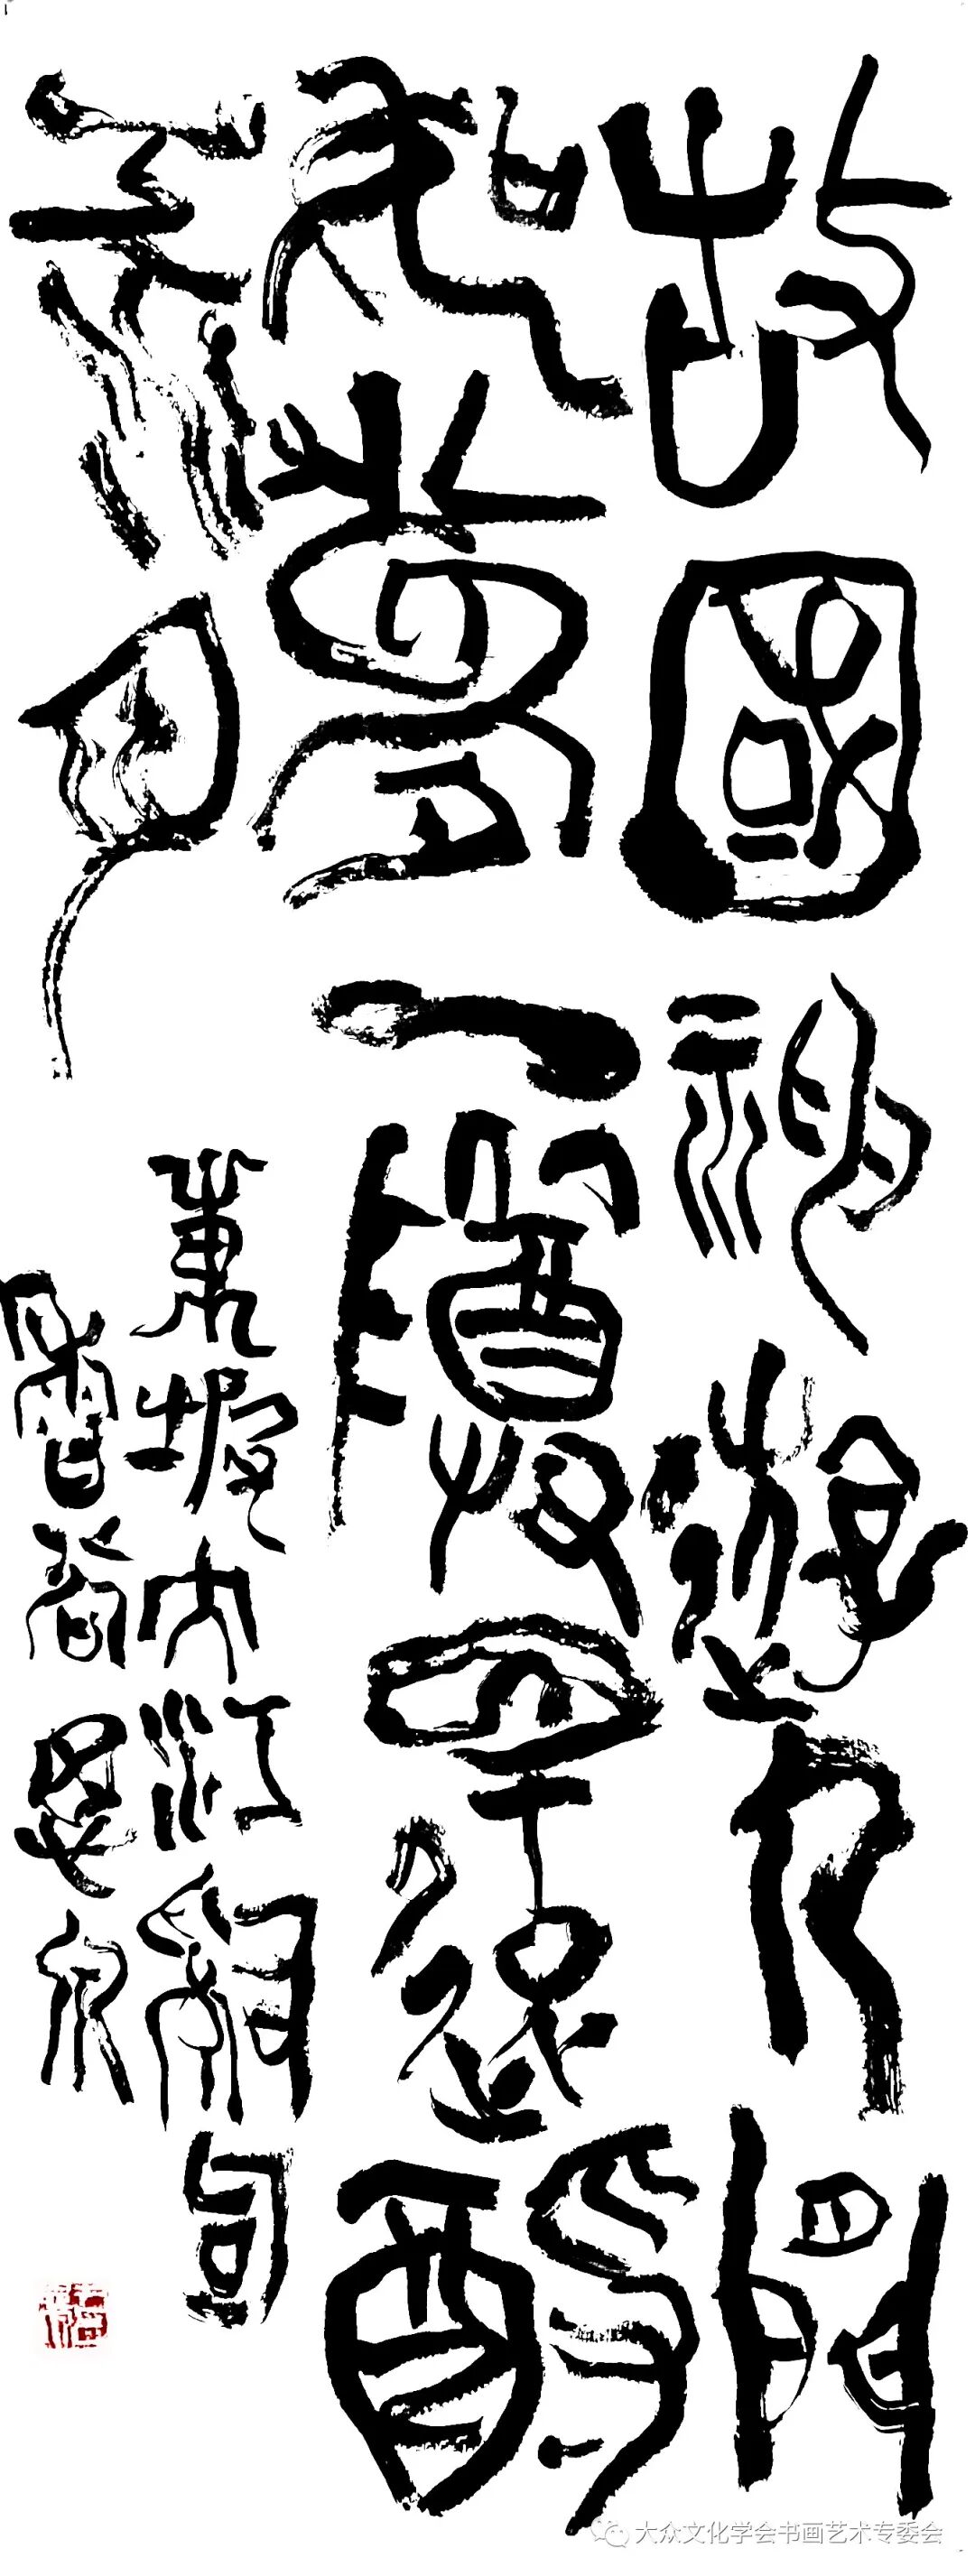 故國神遊人間
如夢一尊還酹
江月
東坡大江詞句
思泉
大众文化学会书画艺术专委会